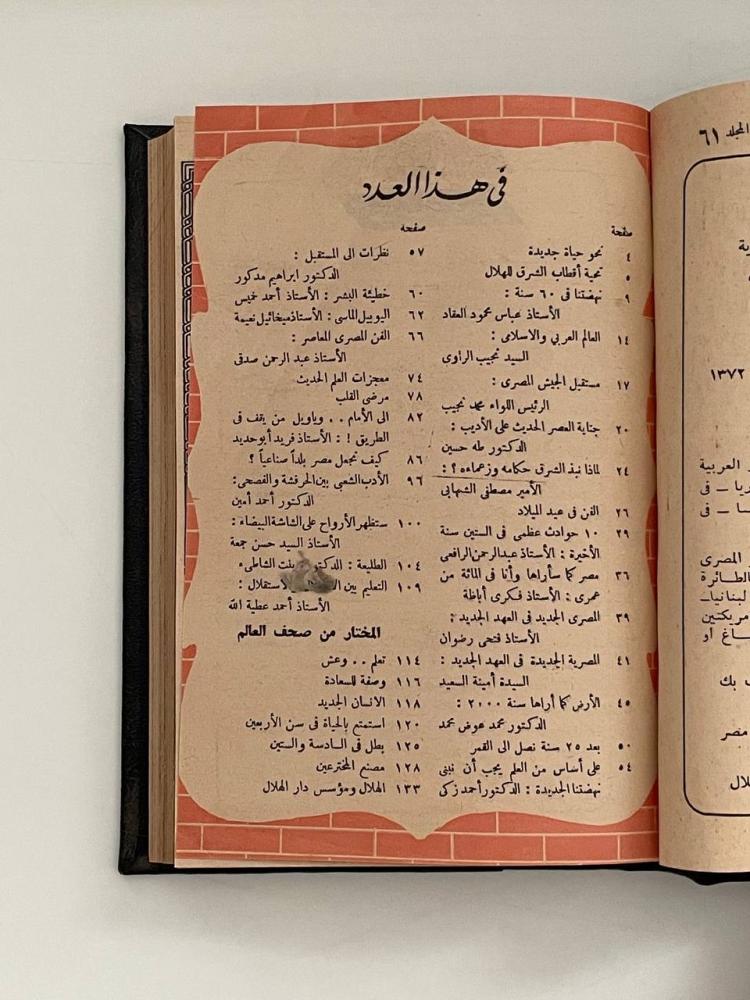 في هذا العدد
صفحة
٤ نحو حياة جديدة
٥ تحية أقطاب الشرق للهلال
٩ نهضتنا في ٦٠ سنة :
الأستاذ عباس محمود العقاد
١٤ العالم العربي والاسلامى :
السيد نجيب الراوى
١٧ مستقبل الجيش المصرى :
الرئيس اللواء محمد نجيب
٢٠ جناية العصر الحديث على الأديب :
الدكتور طه حسين
٢٤ لماذا نبذ الشرق حكامه وزعماءه ؟ :
الأمير مصطفى الشهابى
٢٦ الفن فى عيد الميلاد
٢٩ ١٠ حوادث عظمى فى الستين سنة
الأخيرة : الأستاذ عبدالرحمن الرافعى
٣٦ مصر كما سأراها وأنا فى المائة من
عمرى : الأستاذ فكرى أباظة
٣٩ المصرى الجديد فى العهد الجديد :
الأستاذ فتحى رضوان
٤١ المصرية الجديدة فى العهد الجديد :
السيدة أمينة السعيد
٤٥ الأرض كما أراها سنة ٢٠٠٠ :
الدكتور محمد عوض محمد
٥٠ بعد ٢٥ سنة نصل الى القمر
٥٤ على أساس من العلم يجب أن نبنى
نهضتنا الجديدة : الدكتور أحمد زكى
صفحة
٥٧ نظرات الى المستقبل :
الدكتور ابراهيم مدكور
٦٠ خطيئة البشر : الأستاذ أحمد خميس
٦٢ اليوبيل الماسى : الأستاذ ميخائيل نعيمة
٦٦ الفن المصرى المعاصر :
الأستاذ عبد الرحمن صدقى
٧٤ معجزات العلم الحديث
٧٨ مرضى القلب
٨٢ الى الأمام . . وياويل من يقف فى
الطريق ! : الأستاذ فريد أبو حديد
٨٦ كيف تجعل مصر بلداً صناعياً ؟
٩٦ الأدب الشعبى بين الحرفشة والفصحى :
الدكتور أحمد أمين
١٠٠ ستظهر الأرواح على الشاشة البيضاء :
الأستاذ السيد حسن جمعة
١٠٤ الطليعة : الدكتورة بنت الشاطىء
١٠٩ التعليم بين الاستقلال :
الأستاذ أحمد عطية الله
المختار من صحف العالم
١١٤ تعلم . . وعش
١١٦ وصفة للسعادة
١١٨ الانسان الجديد
١٢٠ استمتع بالحياة فى سن الأربعين
١٢٥ بطل فى السادسة والستين
١٢٨ مصنع المخترعين
١٣٣ الهلال ومؤسس دار الهلال
المجلد ٦١
١٣٧٢
العربية
المصرى
الطائرة
لبنانيا ـ
مريكتين
ب بك
مصر